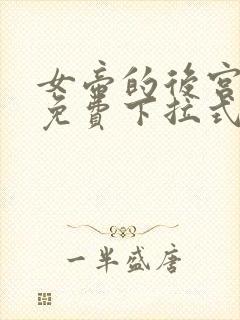 女帝的後宮
免費下拉式
一半盛唐